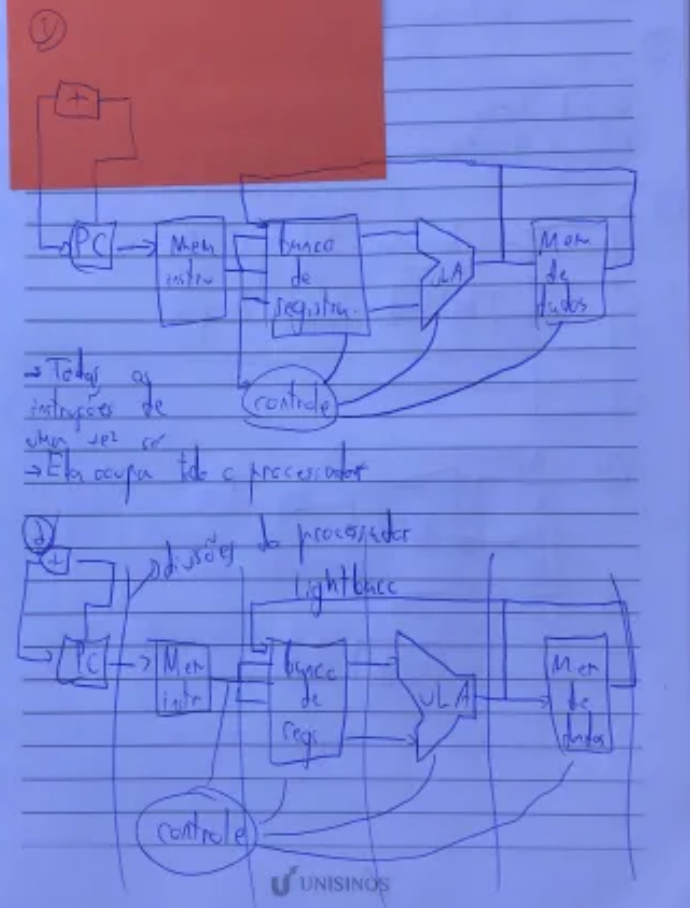 1
+
PC
Mem
instru
banco
de
registra.
ULA
Mem
de
dados
controle
→ Todas as
instruções de
uma vez só
→ Ela ocupa todo o processador
2
+
→ divisões do processador
Lightbacc
PC
Mem
instr
banco
de
regs
ULA
Mem
de
dados
controle
UNISINOS